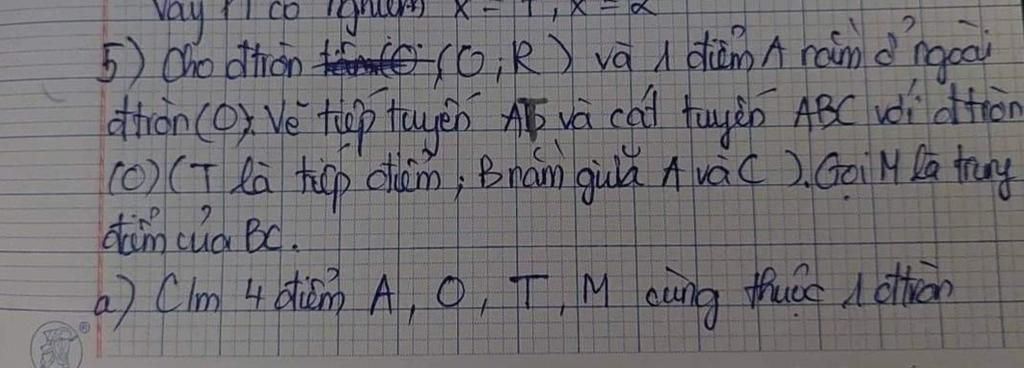 Vậy PT có nghiệm x = 1, x = 2
5) Cho đtròn (O; R) và 1 điểm A nằm ở ngoài
đtròn (O). Vẽ tiếp tuyến AT và cát tuyến ABC với đtròn
(O) (T là tiếp điểm, B nằm giữa A và C). Gọi M là trung
điểm của BC.
a) C/m 4 điểm A, O, T, M cùng thuộc 1 đtròn